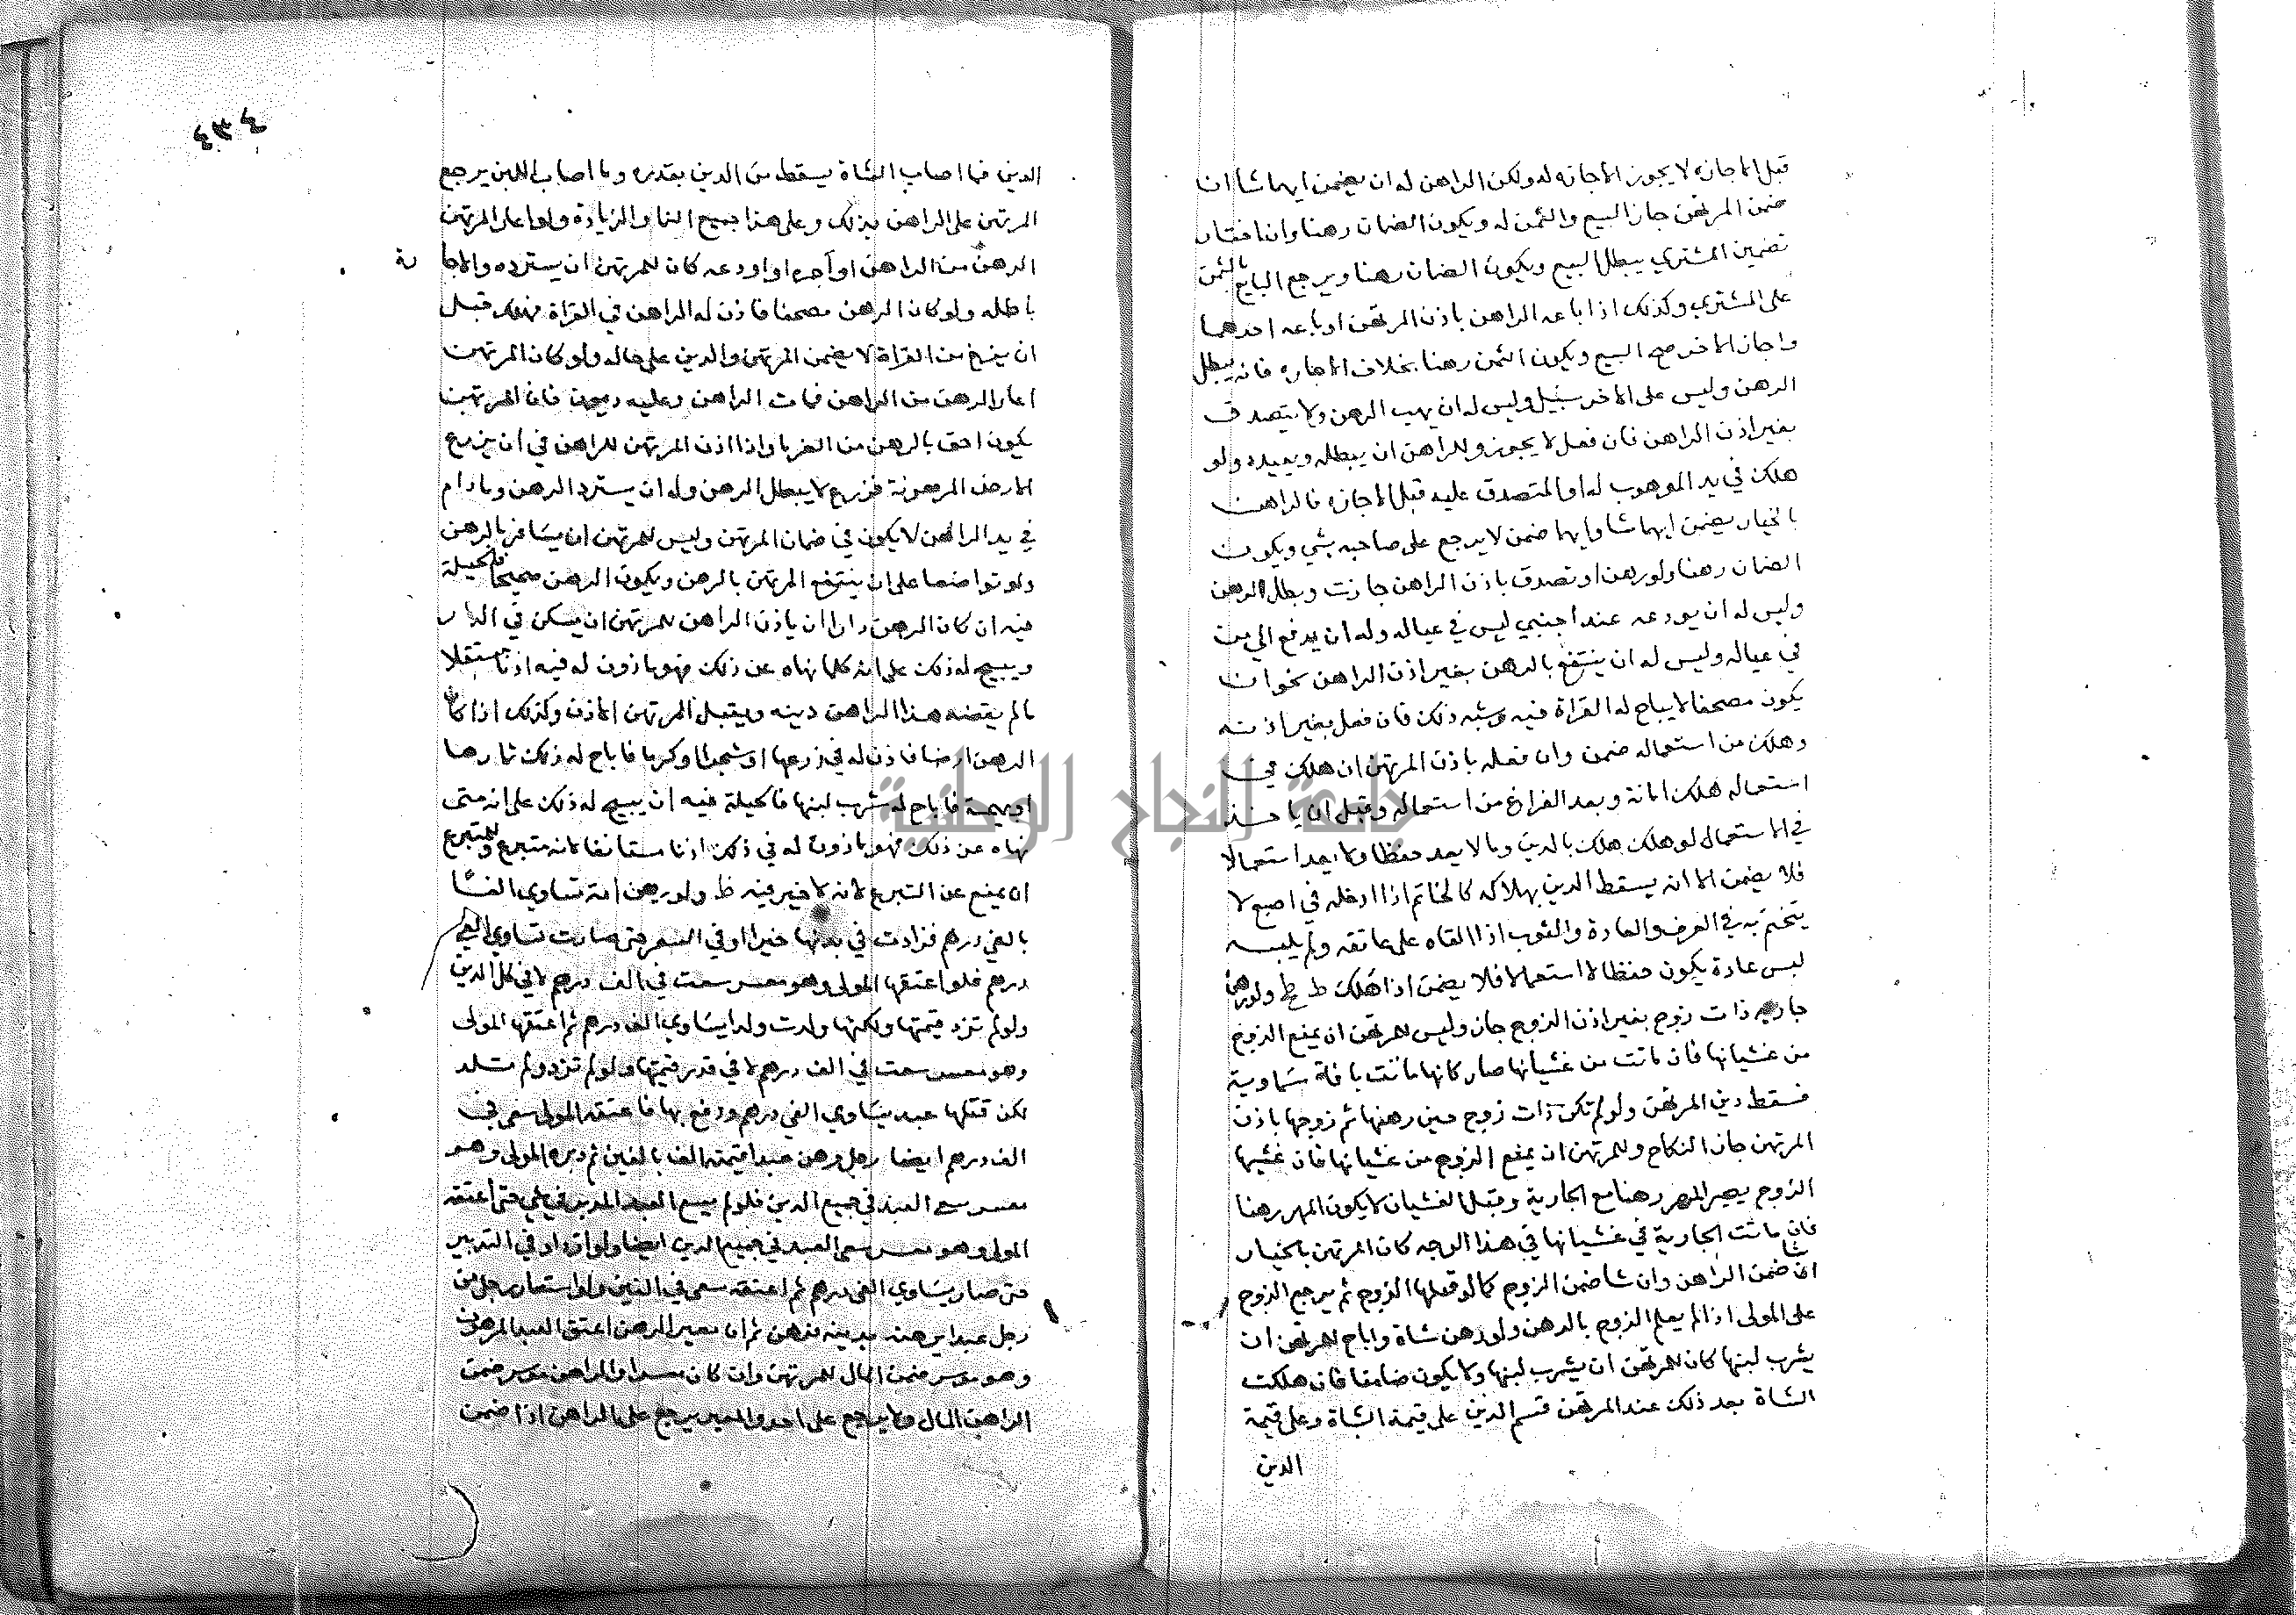 قبل الاجازه لا يجوز الاجازه له ولكن الراهن له ان يضمن ايهما شا ان
ضمن المرتهن جاز البيع والثمن له ويكون الضمان رهنا وان اختار
تضمين المشتري يبطل البيع ويكون الضمان رهنا ويرجع البايع بالثمن
على المشتري وكذلك اذا باعه الراهن باذن المرتهن او باعه احدهما
واجاز الاخر صح البيع ويكون الثمن رهنا بخلاف الاجاره فانه يبطل
الرهن وليس على الاخر سبيل وليس له ان يهب الرهن ولا يتصدق
بغير اذن الراهن فان فعل لا يجوز وللراهن ان يبطله ويعيده ولو
هلك في يد الموهوب له او المتصدق عليه قبل الاجازه فالراهن
بالخيار يضمن ايهما شا وايهما ضمن لا يرجع على صاحبه بشي ويكون
الضمان رهنا ولو رهن او تصدق باذن الراهن جازت وبطل الرهن
وليس له ان يودعه عند اجنبي ليس في عياله وله ان يدفع الي من
في عياله وليس له ان ينتفع بالرهن بغير اذن الراهن نحو ان
يكون مصحفا لا يباح له القراة فيه وشبه ذلك فان فعل بغير اذنه
وهلك من استعماله ضمن وان فعله باذن المرتهن ان هلك في
استعماله هلك امانة وبعد الفراغ من استعماله وقبل ان ياخذ
في الاستعمال لو هلك هلك بالدين وما لا يعد حفظا ولا يعد استعمالا
فلا يضمن الا انه يسقط الدين بهلاكه كالخاتم اذا ادخله في اصبع لا
يتختم به في العرف والعادة والثوب اذا القاه على عاتقه ولم يلبسه
لبس عادة يكون حفظا لا استعمالا فلا يضمن اذا هلك ط ط ولو رهن
جاريه ذات زوج بغير اذن الزوج جاز وليس للمرتهن ان يمنع الزوج
من غشيانها فان ماتت من غشيانها صار كانها ماتت بافة سماوية
فسقط دين المرتهن ولو لم تكن ذات زوج حين رهنها ثم زوجها باذن
المرتهن جاز النكاح وللمرتهن ان يمنع الزوج من غشيانها فان غشيها
الزوج يصير المهر رهنا مع الجارية وقبل الغشيان لا يكون المهر رهنا
فان ماتت الجارية في غشيانها في هذا الوجه كان المرتهن بالخيار
ان شا ضمن الراهن وان شا ضمن الزوج كما لو قتلها الزوج ثم يرجع الزوج
على المولى اذا لم يعلم الزوج بالرهن ولو رهن شاة واباح للمرتهن ان
يشرب لبنها كان للمرتهن ان يشرب لبنها ولا يكون ضامنا فان هلكت
الشاة بعد ذلك عند المرتهن قسم الدين على قيمة الشاة وعلى قيمة
الدين
الدين فما اصاب الشاة يسقط من الدين بقدره وما اصاب اللبن يرجع
المرتهن على الراهن بذلك وعلى هذا جميع النما والزيادة ولو اعار المرتهن
الرهن من الراهن او آجره او اودعه كان للمرتهن ان يسترده والاجارة
باطله ولو كان الرهن مصحفا فاذن له الراهن في القراة فهلك قبل
ان يفرغ من القراة لا يضمن المرتهن والدين على حاله ولو كان المرتهن
اعار الرهن من الراهن فمات الراهن وعليه ديون فان المرتهن
يكون احق بالرهن من الغرما واذا اذن المرتهن للراهن في ان يزرع
الارض المرهونة فزرع لا يبطل الرهن وله ان يسترد الرهن وما دام
في يد الراهن لا يكون في ضمان المرتهن وليس للمرتهن ان يسافر بالرهن
ولو تواضعا على ان ينتفع المرتهن بالرهن ويكون الرهن صحيحا فالحيلة
فيه ان كان الرهن دارا ان ياذن الراهن للمرتهن ان يسكن في الدار
ويبيح له ذلك على انه كلما نهاه عن ذلك فهو ماذون له فيه اذنا مستقبلا
ما لم يقضه هذا الراهن دينه ويقبل المرتهن الاذن وكذلك اذا كان
الرهن ارضا فاذن له في زرعها او شجرا او كرما فاباح له ذلك ثمارها
او بهيمة فاباح له شرب لبنها فالحيلة فيه ان يبيح له ذلك على انه متى
نهاه عن ذلك فهو ماذون له في ذلك اذنا مستانفا لانه متبرع وللمتبرع
ان يمنع عن التبرع لانه لا خير فيه ط ولو رهن امة تساوي الفا
بالفي درهم فزادت في بدنها خيرا او في السعر حتى صارت تساوي الفي
درهم فلو اعتقها المولى وهو معسر سعت في الف درهم لا في كل الدين
ولو لم تزد قيمتها ولكنها ولدت ولدا يساوي الف درهم ثم اعتقها المولى
وهو معسر سعت في الف درهم لا في قدر قيمتها ولو لم تزد ولم تلد
لكن قتلها عبد يساوي الفي درهم ودفع بها فاعتقه المولى سعى في
الف درهم ايضا رجل رهن عبدا قيمته الف بالفين ثم دبره المولى وهو
معسر سعى العبد في جميع الدين فلو لم يسع العبد المدبر في شي حتى اعتقه
المولى وهو معسر سعى العبد في جميع الدين ايضا ولو ازداد في التدبير
حتى صار يساوي الفي درهم ثم اعتقه سعى في الفين ولو استعار رجل من
رجل عبدا يرهنه بدينه فرهن ثم ان معير الرهن اعتق العبد المرهون
وهو موسر ضمن المال للمرتهن وان كان معسرا والراهن موسر ضمن
الراهن المال ولا يرجع على احد والمعير يرجع على الراهن اذا ضمن
جامعة النجاح الوطنية